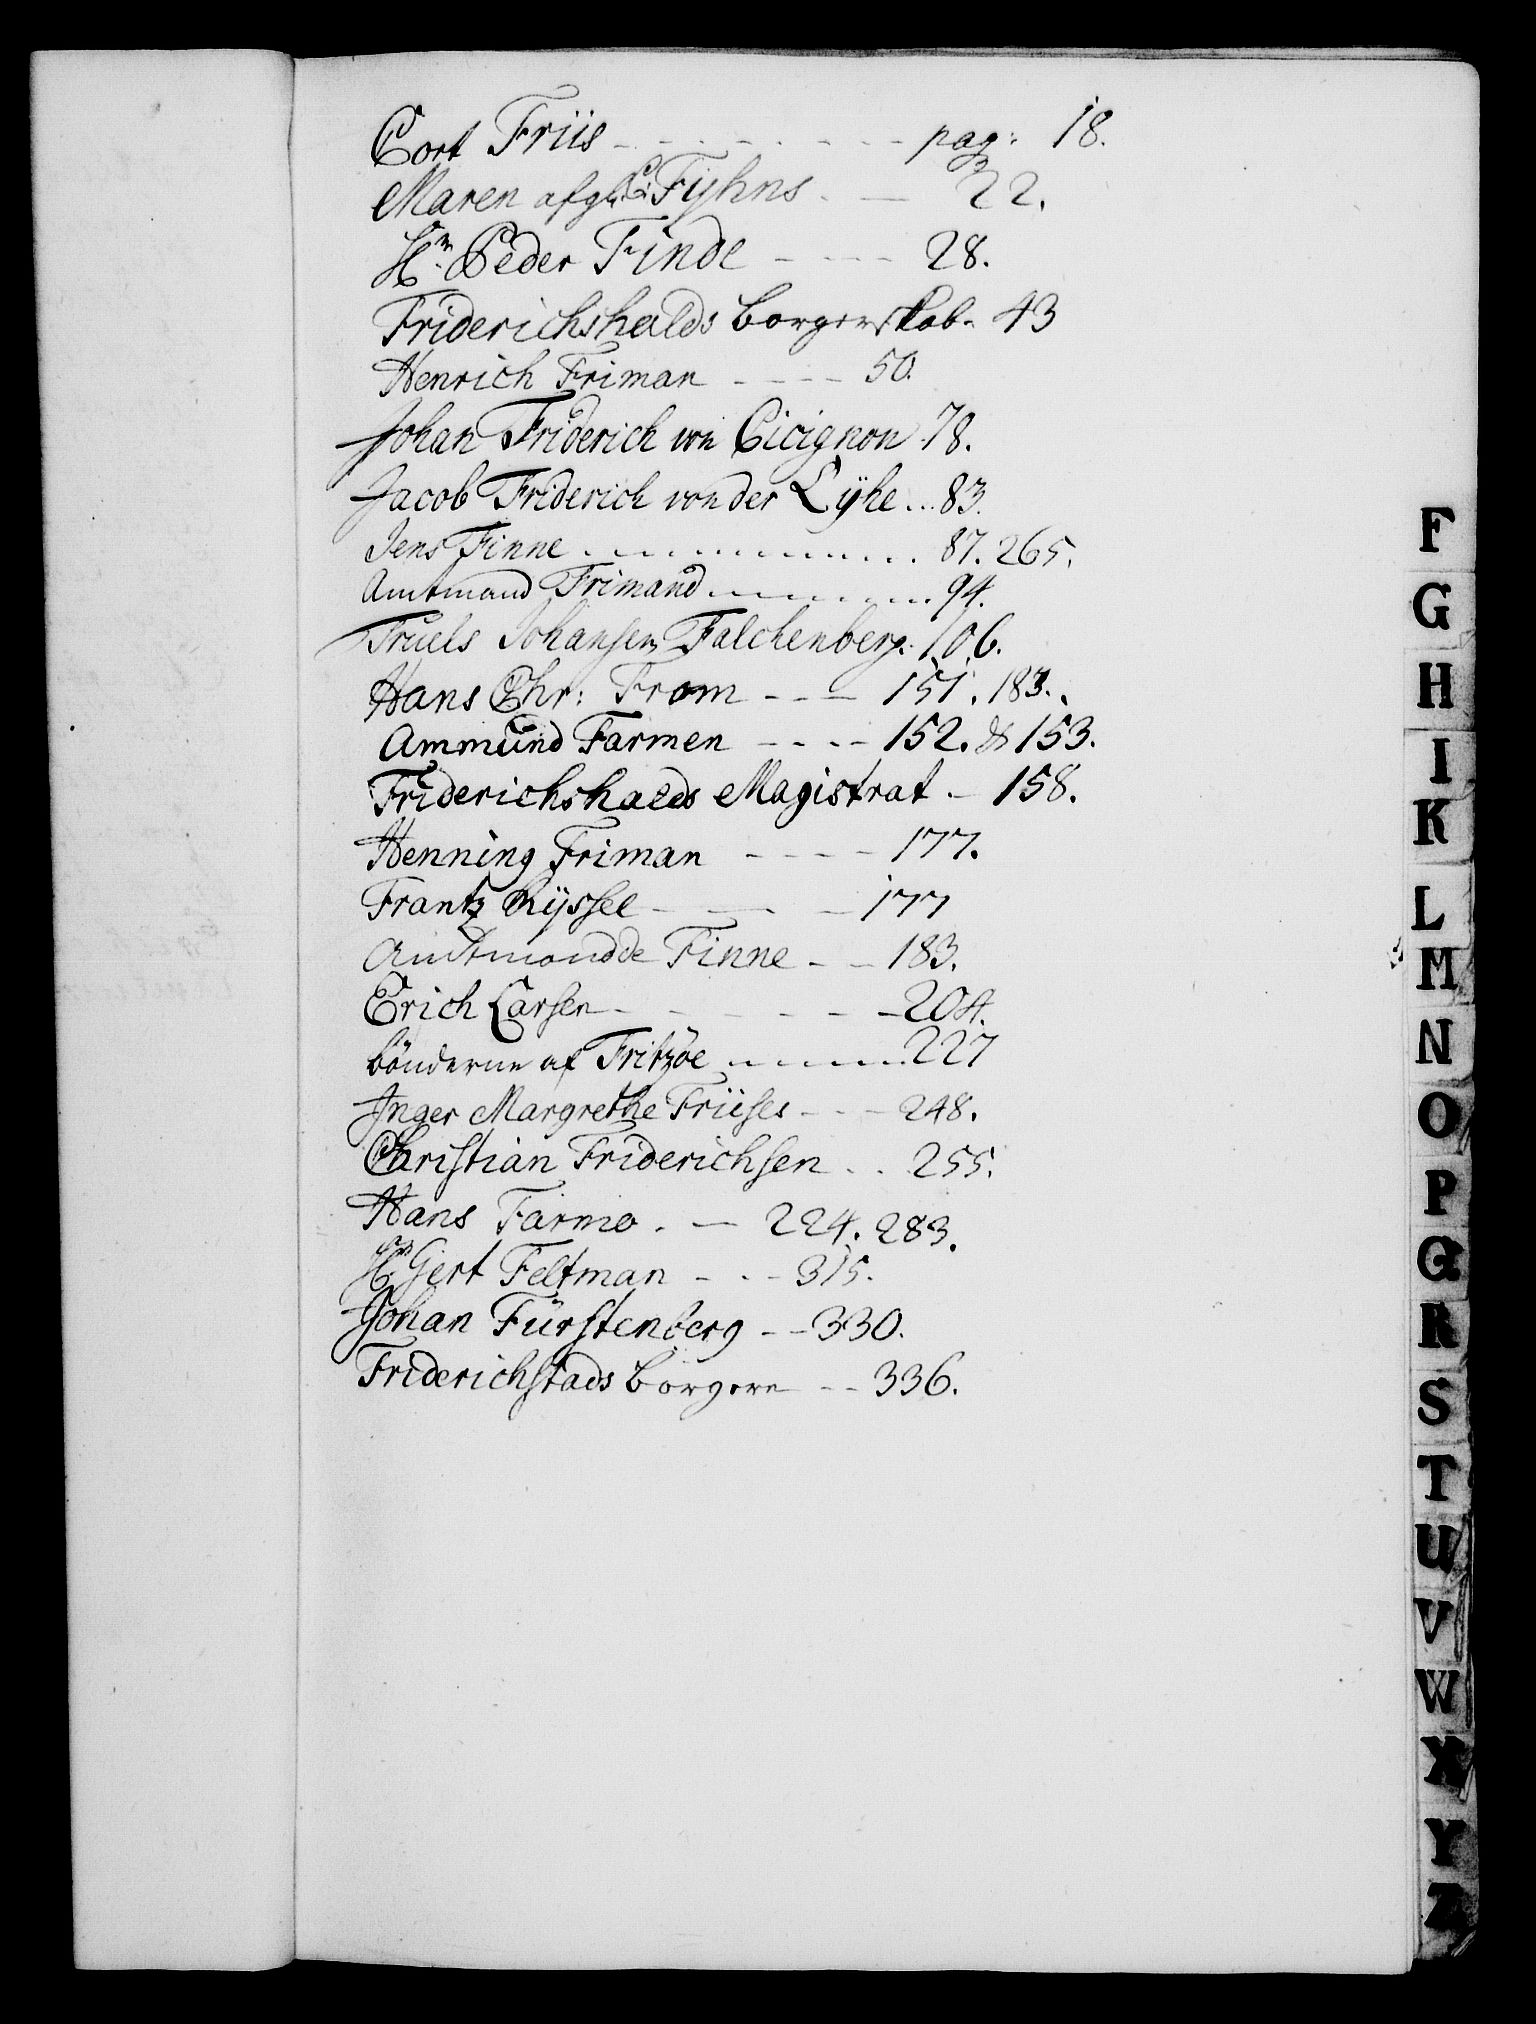 Cort Friis - - - - - - - - pag: 18.
Maren afg: C: Fyhns. - 22.
Hr. Peder Finde - - - - 28.
Friderichshalds borgerskab. 43
Henrich Friman - - - - 50.
Johan Friderich von Cicignon 78.
Jacob Friderich von der Lÿhe... 83.
Jens Finne . . . . . . . . . . . 87. 265.
Amtmand Frimand . . . . . . . . 94.
Truels Johansen Falchenberg: 106.
Hans Chr: From - - - 151. 183.
Ammund Farmen - - - - 152. & 153.
Friderichshalds Magistrat. - 158.
Henning Friman - - - - 177.
Frantz Ryssel - - - 177
Amtmand de Finne - - 183.
Erich Larsen - - - - - - 204.
bönderne af Fritzöe . . . . . . . 227
Inger Margrethe Friises - - - 248.
Christian Friderichsen . . 255.
Hans Farmo . - 224. 283.
Hr. Gert Feltman - - - 315.
Johan Fürstenberg - - 330.
Friderichstads borgere - - 336.
F
G
H
I
K
L
M
N
O
P
Q
R
S
T
U
V
W
X
Y
Z